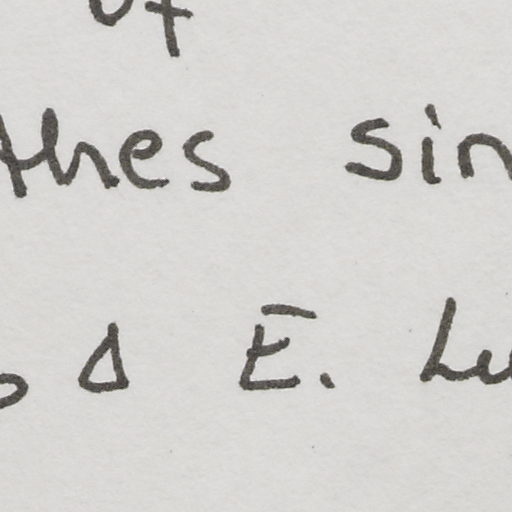 of
thes sin
Δ E. Lu